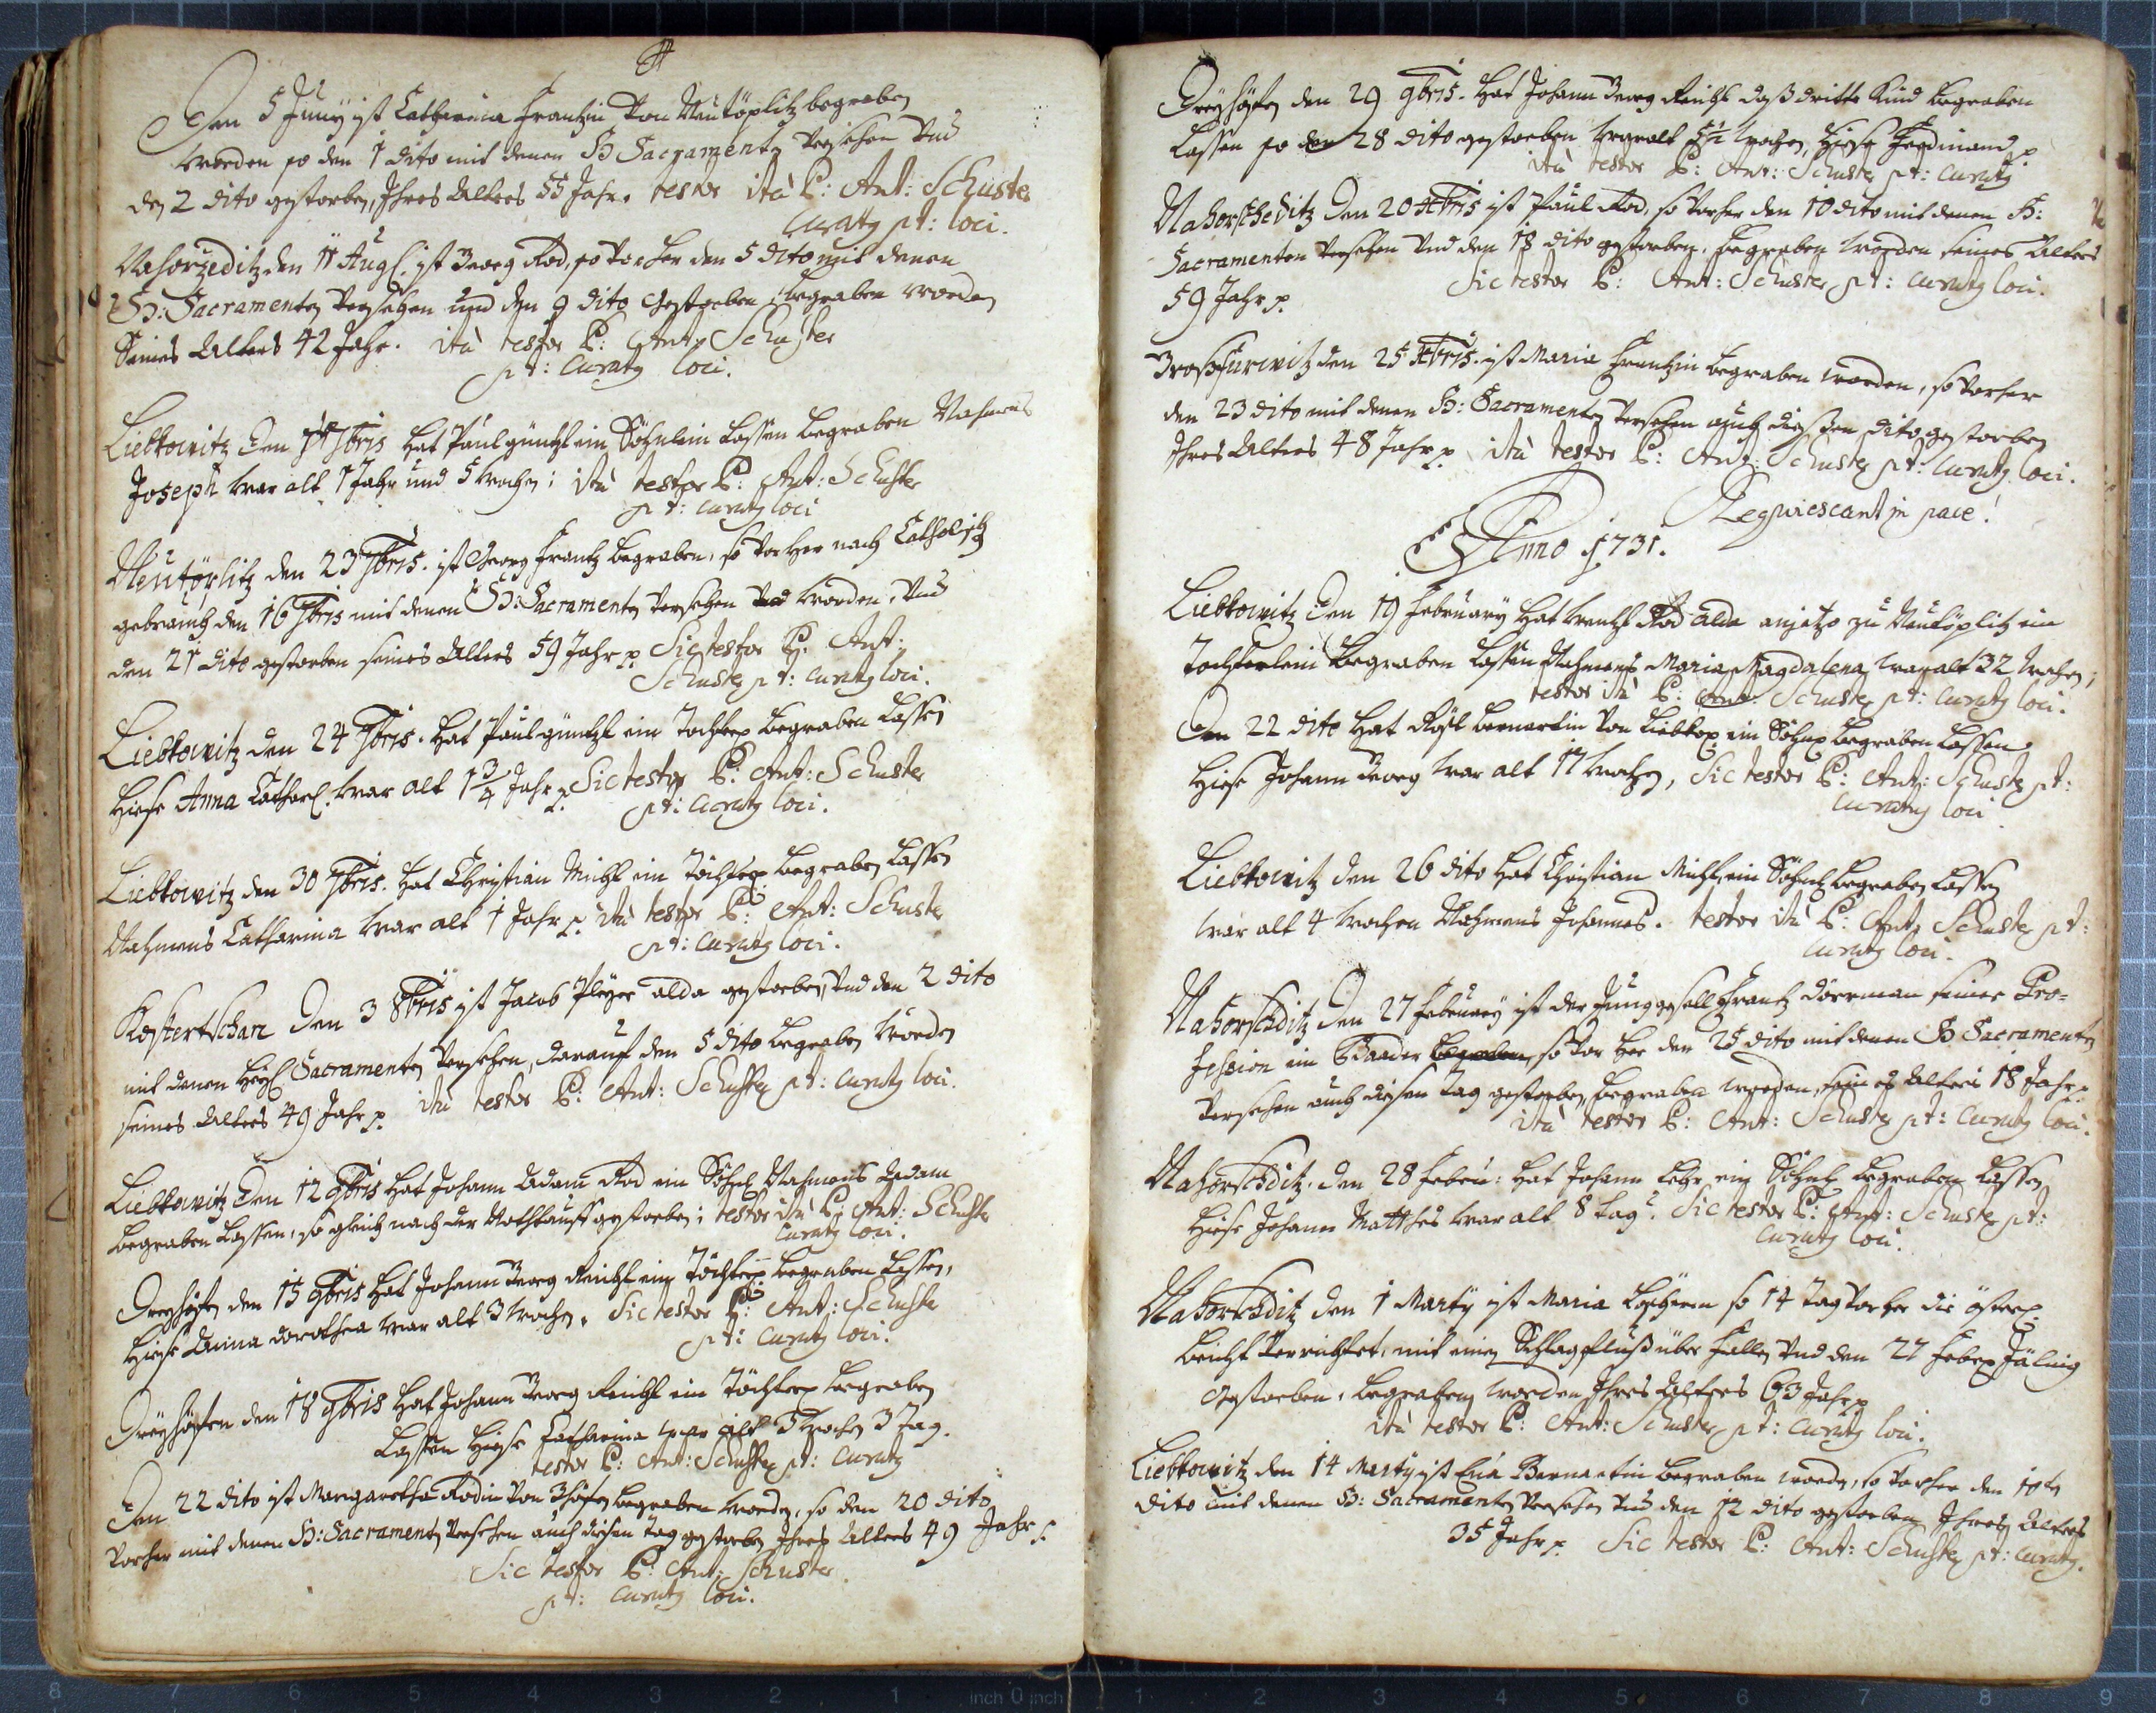 Den 5 Juny ist Catharina Frantzin Von Neutöplitz begraben
worden so den 1 dito mit denen H Sacramenten Versehen Und
den 2 dito gestorben, Ihres Alters 55 Jahr. testor ità P: Ant: Schuster
Curatg pt: loci.
Nahorzeditz den 11 Aug. ist Georg Rod, so Vorher den 5 dito mit denen
H: Sacramenten Versehen und den 9 dito Gestorben, begraben worden
Seines Alters 42 Jahr. ità testor P: Ant: Schuster
pt: Curatg loci.
Liebkowitz den 7bris hat Paul güntzl ein Söhnlein Lassen begraben Nahmens
Joseph war alt 1 Jahr und 5 wochen; ità testor P: Ant: Schuster
pt: curatg loci
Neutöplitz den 23 7bris. ist Georg Frantz begraben, so Vorher nach Catholisch
gebrauch den 16 7bris mit denen H: Sacramenten Versehen worden, Und
den 21 dito gestorben seines Alters 59 Jahr p Sic testor P: Ant:
Schuster pt: curatg loci.
Liebkowitz den 24 7bris. hat Paul güntzl ein Tochter begraben Lassen
hiese Anna Cathar. war alt 1 3/4 Jahr p. Sic testor P: Ant: Schuster
pt: Curatg loci.
Liebkowitz den 30 7bris. hat Christian Michl ein Töchter begraben Lassen
Nahmens Catharina war alt 1 Jahr p. ità testor P: Ant: Schuster
pt: Curatg loci.
Kostertschan Den 3 8bris ist Jacob Pleyer alda gestorben, Und den 2 dito
mit denen heyl Sacramenten Versehen, darauf den 5 dito begraben worden
seines Alters 49 Jahr p. ità testor P: Ant: Schuster pt: Curatg loci.
Liebkowitz Den 12 9bris hat Johann Adam Rod ein Söhnl Nahmens Adam
begraben Lassen, so gleich nach der Nothtauff gestorben; testor ità P: Ant: Schuster
Curatg loci.
Dreyhöfen den 15 9bris hat Johann Georg Reichl ein Töchter begraben Lassen,
hiese Anna dorothea war alt 3 wochen. Sic testor P: Ant: Schuster
pt: Curatg loci.
Dreyhöfen den 18 9bris hat Johann Georg Reichl ein Töchter begraben
Lassen hiese Catharina war alt 3 wochen 3 Tag.
testor P: Ant: Schuster pt: Curatg
Den 22 dito ist Margaretha Rodin Von 3höfen begraben worden, so den 20 dito
Vorher mit denen H: Sacramenten Versehen auch diesen Tag gestorben Ihres Alters 49 Jahr p.
Sic testor P: Ant: Schuster
pt: Curatg loci.
Dreyhöfen den 29 9bris. hat Johann Georg Reichl daß dritte Kind begraben
Lassen so den 28 dito gestorben war alt 5 1/2 wochen, hiese Ferdinand p
ità testor P: Ant: Schuster pt: curatg
Nahorscheditz Den 20 Xbris ist Paul Rod, so Vorher den 10 dito mit denen H:
Sacramenten Versehen Und den 18 dito gestorben, begraben worden seines Alters
59 Jahr p. Sic testor P: Ant: Schuster pt: curatg loci.
Großfurwitz den 25 Xbris. ist Maria Frantzin begraben worden, so Vorher
den 23 dito mit denen H: Sacramenten Versehen auch diesen dito gestorben
Ihres Alters 48 Jahr p. ità testor P: Ant: Schuster pt: Curatg loci.
Reqwiescant in pace!
Anno 1731.
Liebkowitz Den 19 February hat wentzl Rod alda anjetzo zu Neutöplitz ein
Tochterlein begraben Lassen Nahmens Maria Magdalena war alt 32 wochen;
testor ità P: Ant: Schuster pt: Curatg loci.
Den 22 dito hat Rosl Bernartin Von Liebkop ein Söhnl begraben Lassen
hiese Johann Georg war alt 17 wochen, Sic testor P: Ant: Schuster pt:
Curatg loci
Liebkowitz den 26 dito hat Christian Michl, ein Söhnl begraben Lassen
war alt 4 wochen Nahmens Johannes. testor ità P: Ant: Schuster pt:
Curatg loci.
Nahorschditz Den 27 February ist der Junggesell Frantz dörrman seiner Pro=
fession ein Baader begraben, so Vor her den 25 dito mit denen H Sacramenten
Versehen auch diesen Tag gestorben, begraben worden, seines Alters 18 Jahr p.
ità testor P: Ant: Schuster pt: Curatg loci.
Nahorschditz. den 28 Febru: hat Johann Lehr ein Söhnl begraben Lassen
hiese Johann Matthes war alt 8 Tag. Sic testor P: Ant: Schuster pt:
Curatg loci.
Nahorschditz den 1 Marty ist Maria so 14 Tag Vorher die österl
beicht Verrichtet, mit einen Schlagfluß über fallen Und den 27 Febr Jäling
Gestorben, begraben worden Ihres Alters 63 Jahr p
ità testor P: Ant: Schuster pt: Curatg loci.
Liebkowitz den 14 Marty ist Eva Bernartin begraben worden, so Vorher den 10tn
dito mit denen H: Sacramenten Versehen Und den 12 dito gestorben Ihres Alters
35 Jahr p. Sic testor P: Ant: Schuster pt: Curatg.
8 7 6 5 4 3 2 1 inch 0 inch 1 2 3 4 5 6 7 8 9